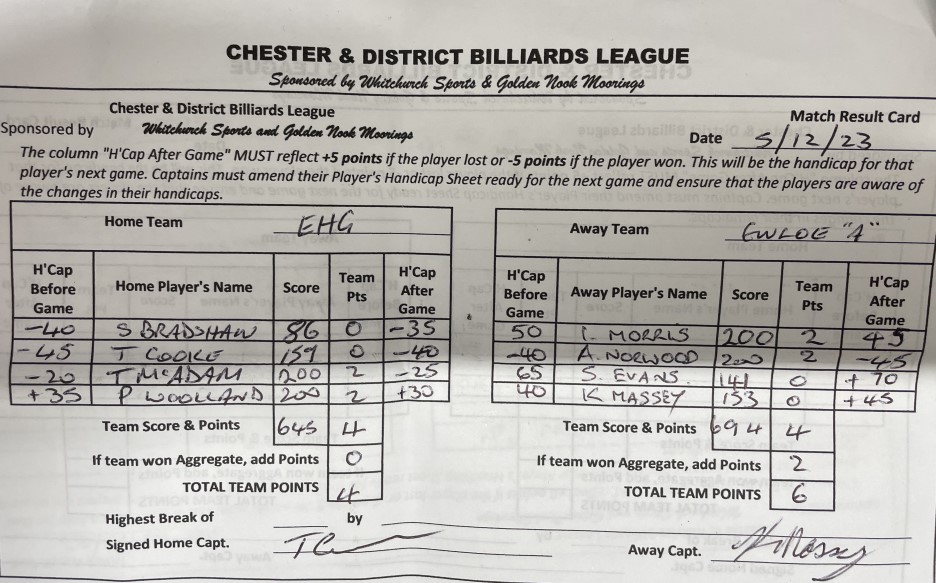 CHESTER & DISTRICT BILLIARDS LEAGUE
Sponsored by Whitchurch Sports & Golden Nook Moorings
Chester & District Billiards League
Match Result Card
Sponsored by Whitchurch Sports and Golden Nook Moorings
Date 5/12/23
The column "H'Cap After Game" MUST reflect +5 points if the player lost or -5 points if the player won. This will be the handicap for that
player's next game. Captains must amend their Player's Handicap Sheet ready for the next game and ensure that the players are aware of
the changes in their handicaps.
Home Team EHG
H'Cap Before Game Home Player's Name Score Team Pts H'Cap After Game
-40 S BRADSHAW 86 0 -35
-45 T COOKE 159 0 -40
-20 T McADAM 200 2 -25
+35 P WOOLLAND 200 2 +30
Team Score & Points 645 4
If team won Aggregate, add Points 0
TOTAL TEAM POINTS 4
Highest Break of by
Signed Home Capt.
Away Team EWLOE "A"
H'Cap Before Game Away Player's Name Score Team Pts H'Cap After Game
50 I. MORRIS 200 2 45
-40 A. NORWOOD 200 2 -45
65 S. EVANS. 141 0 +70
40 K MASSEY 153 0 +45
Team Score & Points 694 4
If team won Aggregate, add Points 2
TOTAL TEAM POINTS 6
Away Capt. K Massey